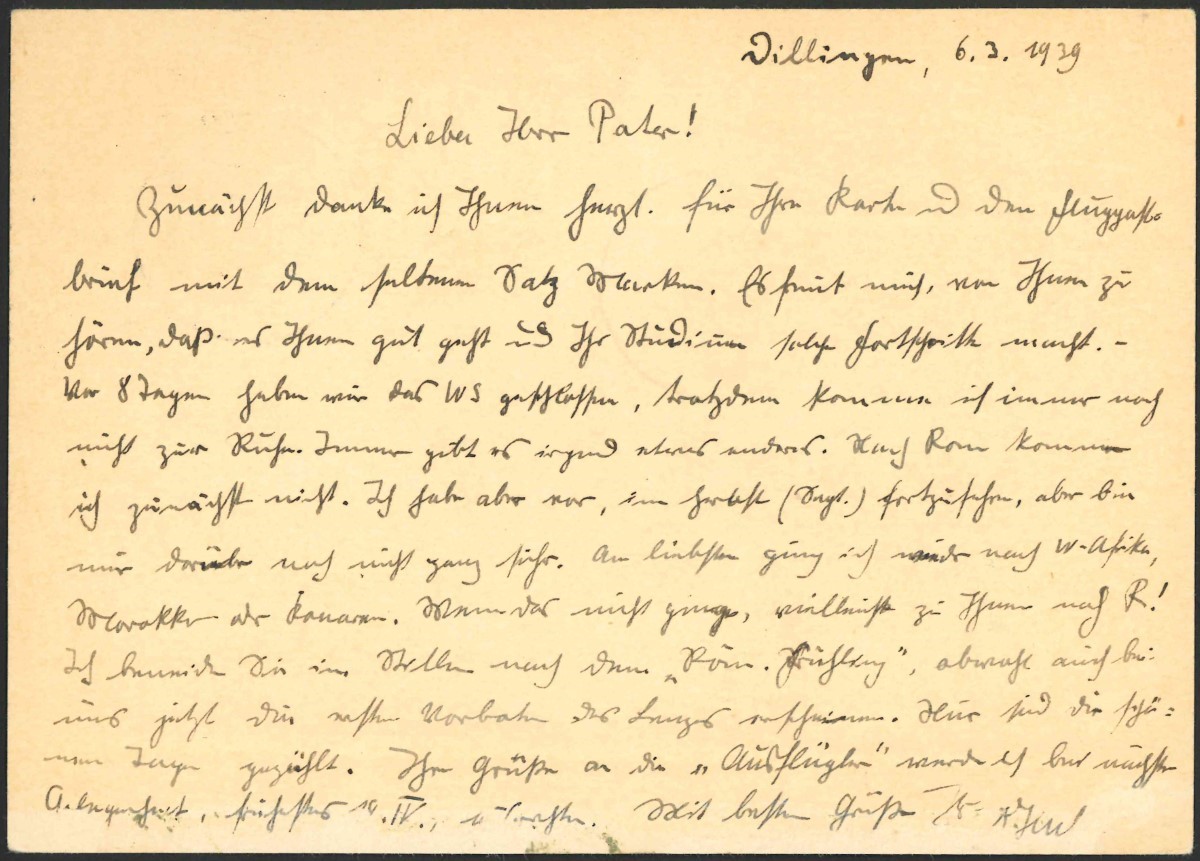 Dillingen, 6.3.1939
Lieber Herr Pater!
Zunächst danke ich Ihnen herzl. für Ihre Karte u den Fluggast-
brief mit dem seltenen Satz Marken. Es freut mich, von Ihnen zu
hören, daß es Ihnen gut geht und Ihr Studium solche Fortschritte macht. –
Vor 8 Tagen haben wir das WS geschlossen, trotzdem komme ich immer noch
nicht zur Ruhe. Immer gibt es irgend etwas anderes. Nach Rom komme
ich zunächst nicht. Ich habe aber vor, im Herbst (Sept.) fortzufahren, aber bin
mir darüber noch nicht ganz sicher. Am liebsten ging ich wieder nach W-Afrika,
Marokko oder Kanaren. Wenn das nicht ginge, vielleicht zu Ihnen nach R.!
Ich beneide Sie im Stillen nach dem „Röm. Frühling", obwohl auch bei
uns jetzt die ersten Vorboten des Lenzes erscheinen. Nur sind die schö=
nen Tage gezählt. Ihre Grüße an die „Ausflügler" werde ich bei nächster
Gelegenheit, frühestens IV., Mit besten Grüßen